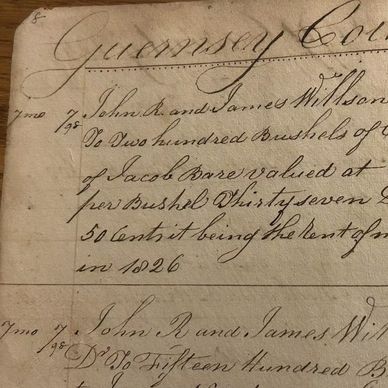 8
Guernsey Cou
7mo 7/98 John R. and James Willson
To Two hundred Bushels of
of Jacob Bare valued at
per Bushel Thirty seven
50 Cents it being the Rent of m
in 1826
7mo 7/98 John R and James Wil
Dr To Fifteen Hundred B